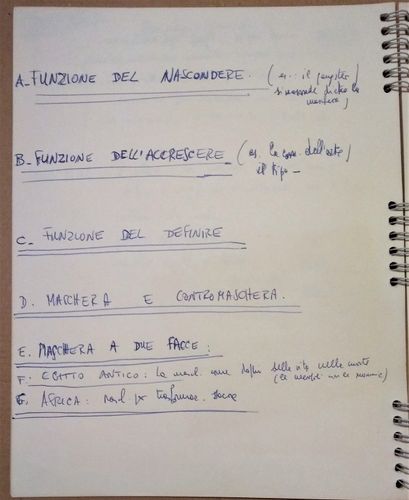 A - FUNZIONE DEL NASCONDERE. (es.: il gangster
si nasconde dietro la
maschera)
B - FUNZIONE DELL'ACCRESCERE - (es. la comm. dell'arte)
il tipo -
C - FUNZIONE DEL DEFINIRE
D. MASCHERA E CONTROMASCHERA.
E. MASCHERA A DUE FACCE:
F. EGITTO ANTICO: la mash. come della vita nella morte
(le
G. AFRICA: mash. x trasformaz.